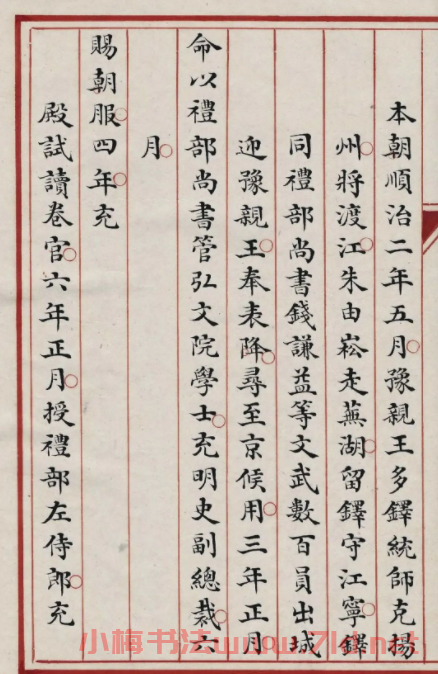 本朝順治二年五月豫親王多鐸統師克揚
州將渡江朱由崧走蕪湖留鐸守江寧鐸
同禮部尚書錢謙益等文武數百員出城
迎豫親王奉表降尋至京候用三年正月
命以禮部尚書管弘文院學士充明史副總裁六
月
賜朝服四年充
殿試讀卷官六年正月授禮部左侍郎充
小梅书法www.7k.net